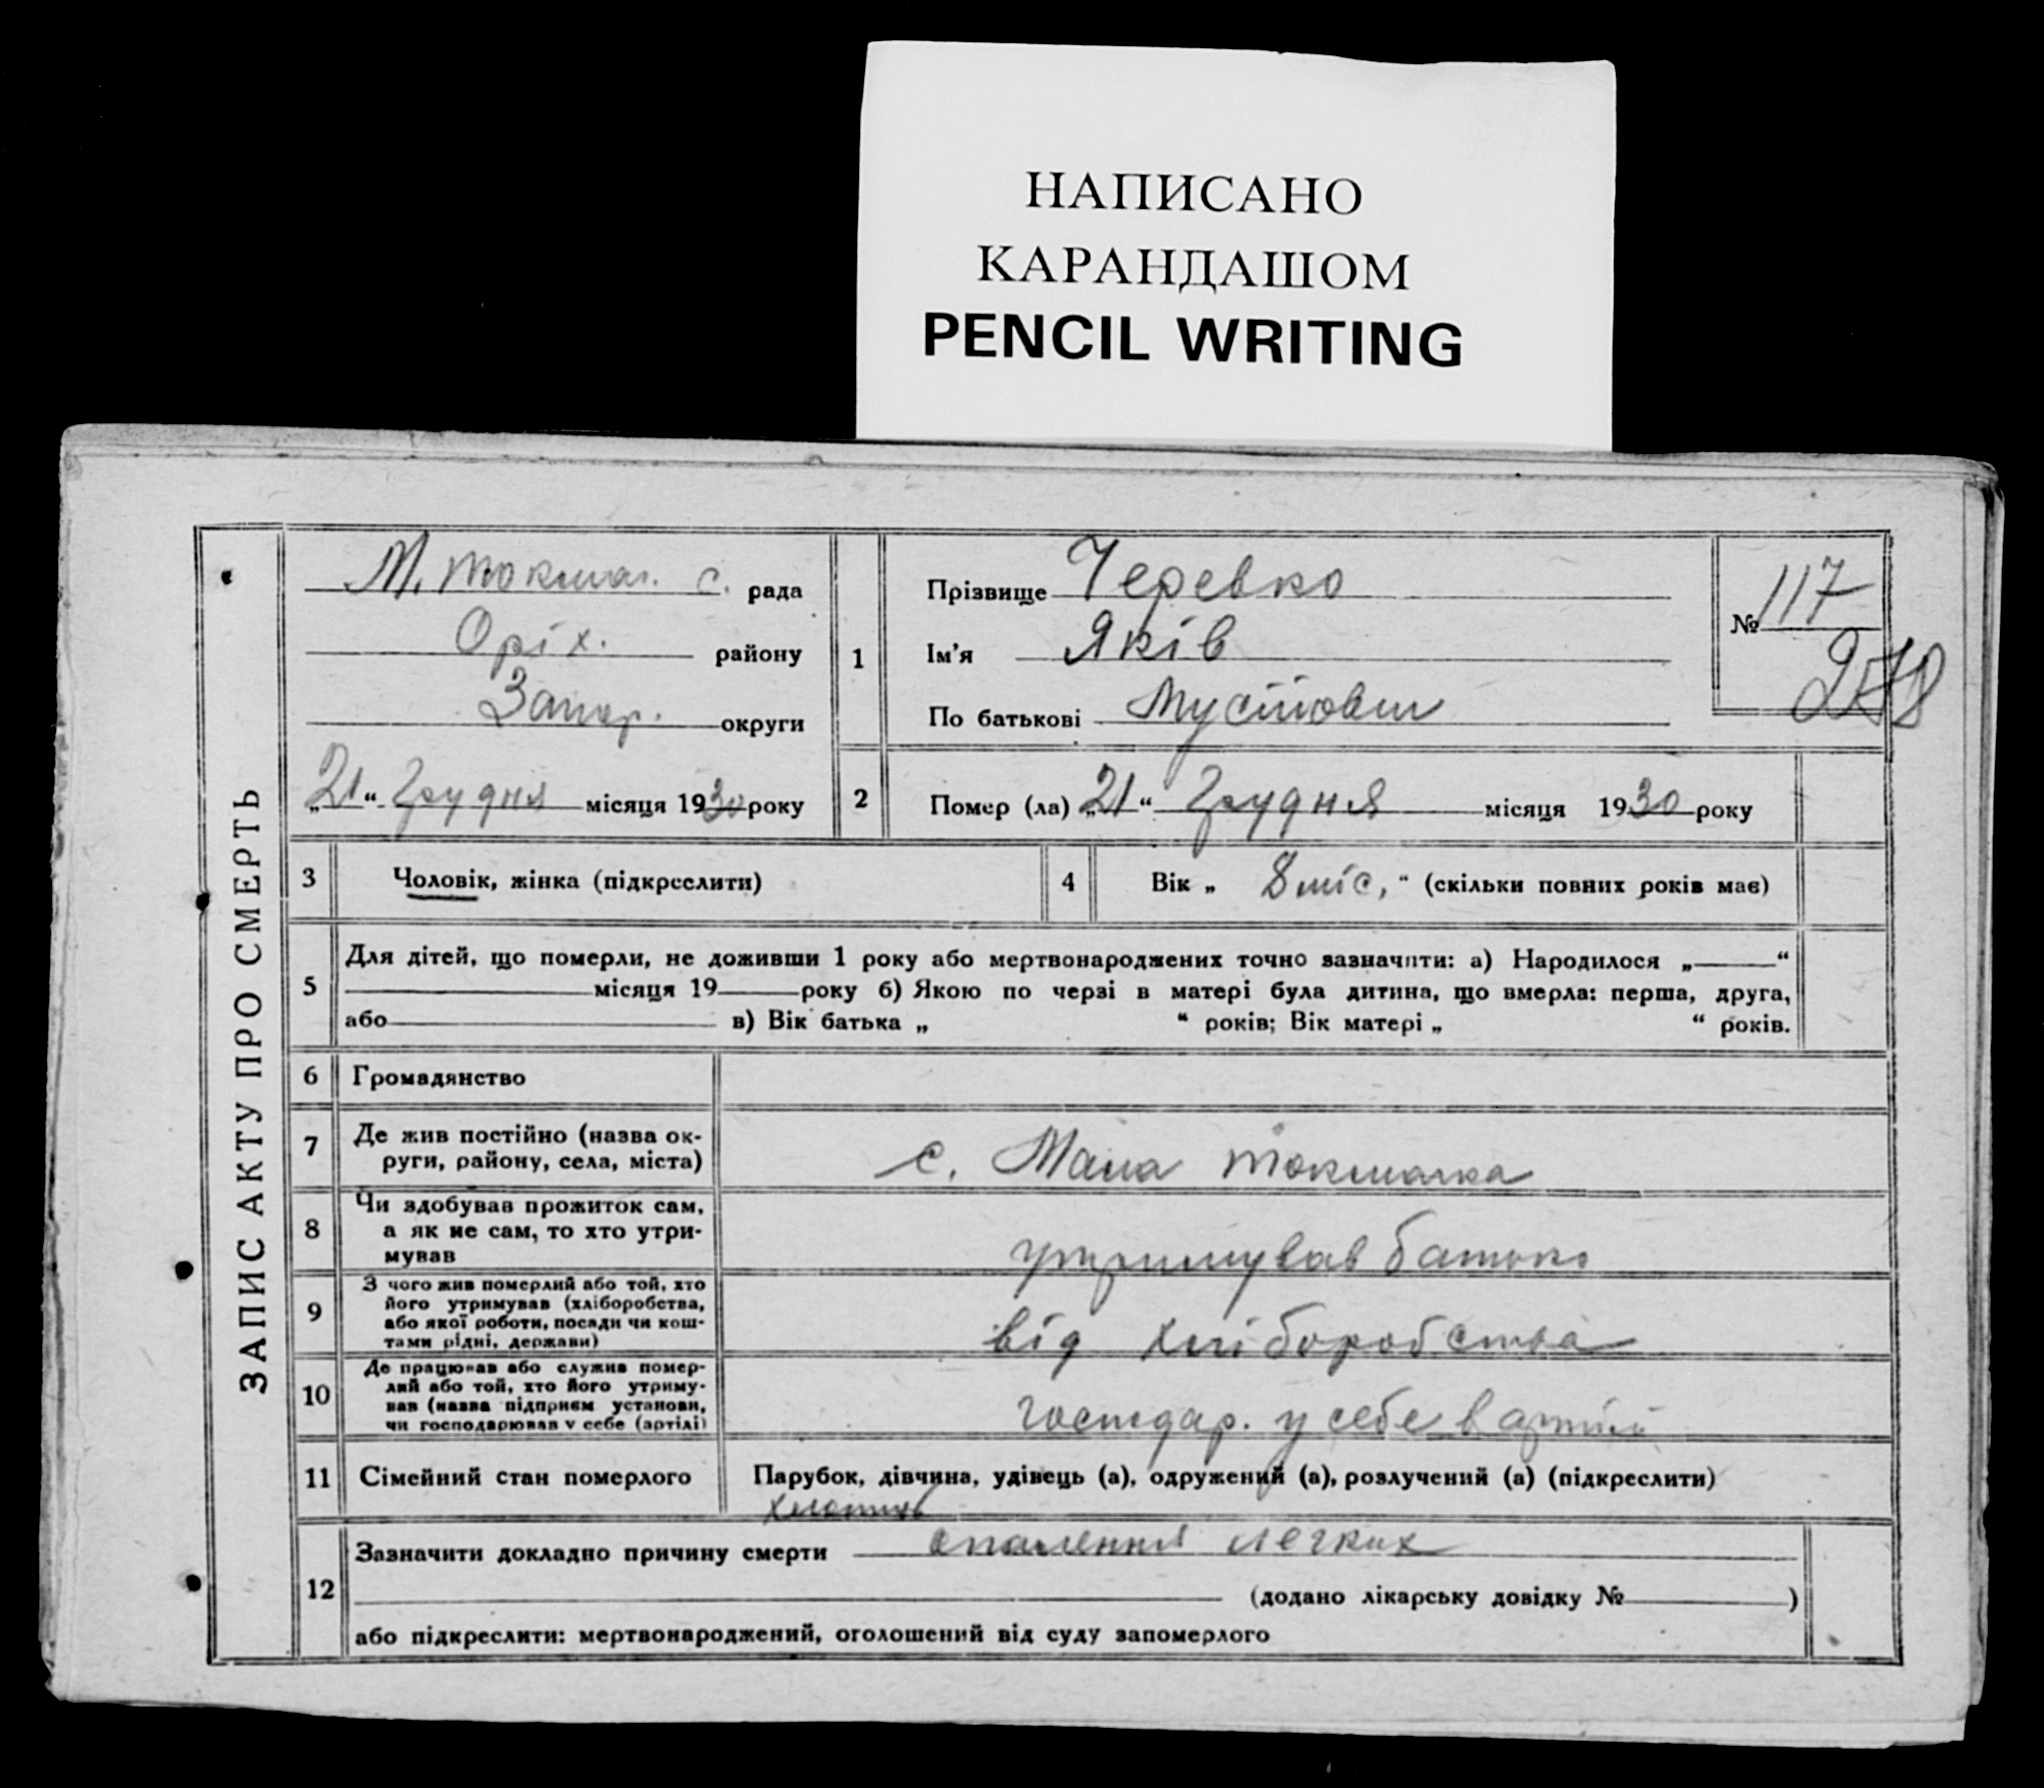 НАПИСАНО
КАРАНДАШОМ
PENCIL WRITING
ЗАПИС АКТУ ПРО СМЕРТЬ
М. Токмац. с. рада
Оріх. району
Запор. округи
„21“ Грудня місяця 1930 року
1
Прізвище Черевко
Ім'я Яків
По батькові
№ 117
2
Помер (ла) „21“ Грудня місяця 1930 року
3 Чоловік, жінка (підкреслити)
4 Вік „ 8 міс, “ (скільки повних років має)
5 Для дітей, що померли, не доживши 1 року або мертвонароджених точно зазначити: а) Народилося „ “
місяця 19 року б) Якою по черзі в матері була дитина, що вмерла: перша, друга,
або в) Вік батька „ “ років; Вік матері „ “ років.
6 Громадянство
7 Де жив постійно (назва ок-
руги, району, села, міста)
с. Мала Токмачка
8 Чи здобував прожиток сам,
а як не сам, то хто утри-
мував
утримував батько
9 З чого жив померлий або той, хто
його утримував (хліборобства,
або якої роботи, посади чи кош-
тами рідні, держави)
від хліборобства
10 Де працював або служив помер-
лий або той, хто його утриму-
вав (назва підприєм установи,
чи господарював у себе (артілі)
господар. у себе в артілі
11 Сімейний стан померлого
Парубок, дівчина, удівець (а), одружений (а), розлучений (а) (підкреслити)
12 Зазначити докладно причину смерти спалення легких
(додано лікарську довідку № )
або підкреслити: мертвонароджений, оголошений від суду запомерлого